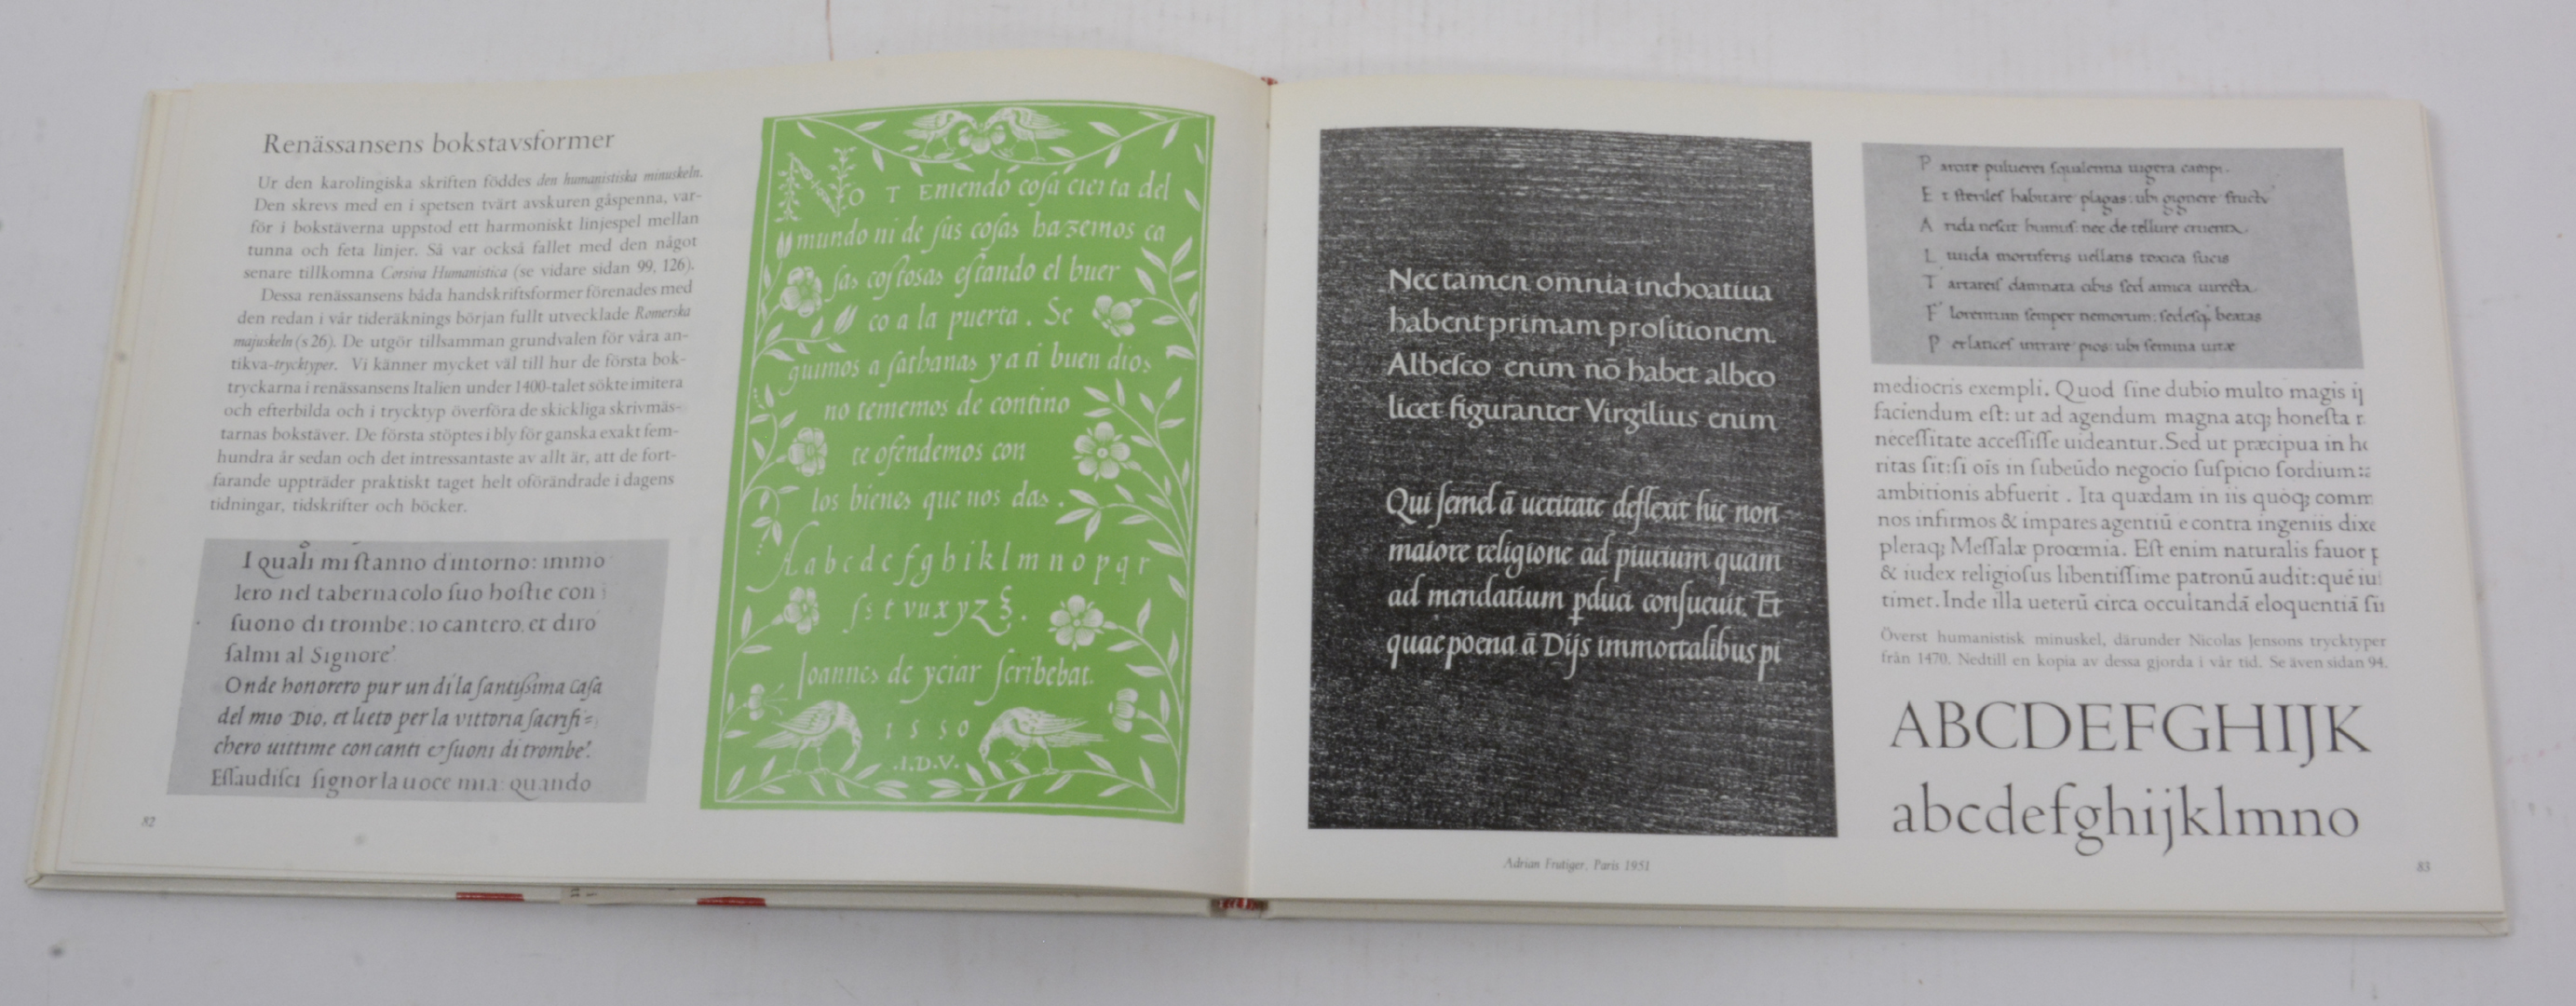 Renässansens bokstavsformer
Ur den karolingiska skriften föddes den humanistiska minuskeln.
Den skrevs med en i spetsen tvärt avskuren gåspenna, var-
för i bokstäverna uppstod ett harmoniskt linjespel mellan
tunna och feta linjer. Så var också fallet med den något
senare tillkomna Corsiva Humanistica (se vidare sidan 99, 126).
Dessa renässansens båda handskriftsformer förenades med
den redan i vår tideräknings början fullt utvecklade Romerska
majuskeln (s 26). De utgör tillsamman grundvalen för våra an-
tikva-trycktyper. Vi känner mycket väl till hur de första bok-
tryckarna i renässansens Italien under 1400-talet sökte imitera
och efterbilda och i trycktyp överföra de skickliga skrivmäs-
tarnas bokstäver. De första stöptes i bly för ganska exakt fem-
hundra år sedan och det intressantaste av allt är, att de fort-
farande uppträder praktiskt taget helt oförändrade i dagens
tidningar, tidskrifter och böcker.
I quali mi ſtanno d'intorno: immo
lero nel tabernacolo ſuo hoſtie con
ſuono di trombe: io cantero, et diro
ſalmi al Signore
Onde honorero pur un dí la ſantiſsima caſa
del mio DIO, et lieto per la vittoria ſacrifi=
chero uittime con canti & ſuoni di trombe.
Eſſaudiſci ſignor la uoce mia: quando
82
NO T Eniendo coſa cierta del
mundo ni de ſus coſas hazemos ca
ſas coſtosas eſtando el huer
co a la puerta. Se
guimos a ſathanas y a ti buen dios
no tememos de contino
te ofendemos con
los bienes que nos das.
A a b c d e f g h i k l m n o p q r
ſ s t v u x y z ξ.
Ioannes de yciar ſcribebat.
1 5 5 0
.I.D.V.
Nec tamen omnia inchoatiua
habent primam proſitionem.
Albeſco enim nō habet albeo
licet figuranter Virgilius enim
Qui ſemel ā ueritate deflexit hic non
maiore religione ad piurium quam
ad mendatium pduci conſueuit. Et
quae poena ā Dijs immortalibus pi
Adrian Frutiger, Paris 1951
P arcite puluerei ſqualentia iugera campi.
E t ſteriles habitare plagas: ubi gignere fructũ
A rida neſcit humuſ: nec de tellure cruenta.
L iuida mortiferis uellatis toxica ſucis
T artareiſ damnata cibis ſed amica uirecta
F lorentum ſemper nemorum: ſedeſq; beatas
P erlanceſ intrare pios: ubi ſemina uitæ
mediocris exempli. Quod ſine dubio multo magis ij
faciendum eſt: ut ad agendum magna atq; honeſta r
neceſſitate acceſſiſſe uideantur. Sed ut præcipua in ho
ritas ſit: ſi oĩs in ſubeũdo negocio ſuſpicio ſordium:
ambitionis abfuerit. Ita quædam in iis quoq; comm
nos infirmos & impares agentiũ e contra ingeniis dixe
pleraq; Meſſalæ proœmia. Eſt enim naturalis fauor p
& iudex religioſus libentiſſime patronũ audit: quẽ iu
timet. Inde illa ueterũ circa occultandã eloquentiã ſii
Överst humanistisk minuskel, därunder Nicolas Jensons trycktyper
från 1470. Nedtill en kopia av dessa gjorda i vår tid. Se även sidan 94.
ABCDEFGHIJK
abcdefghijklmno
83